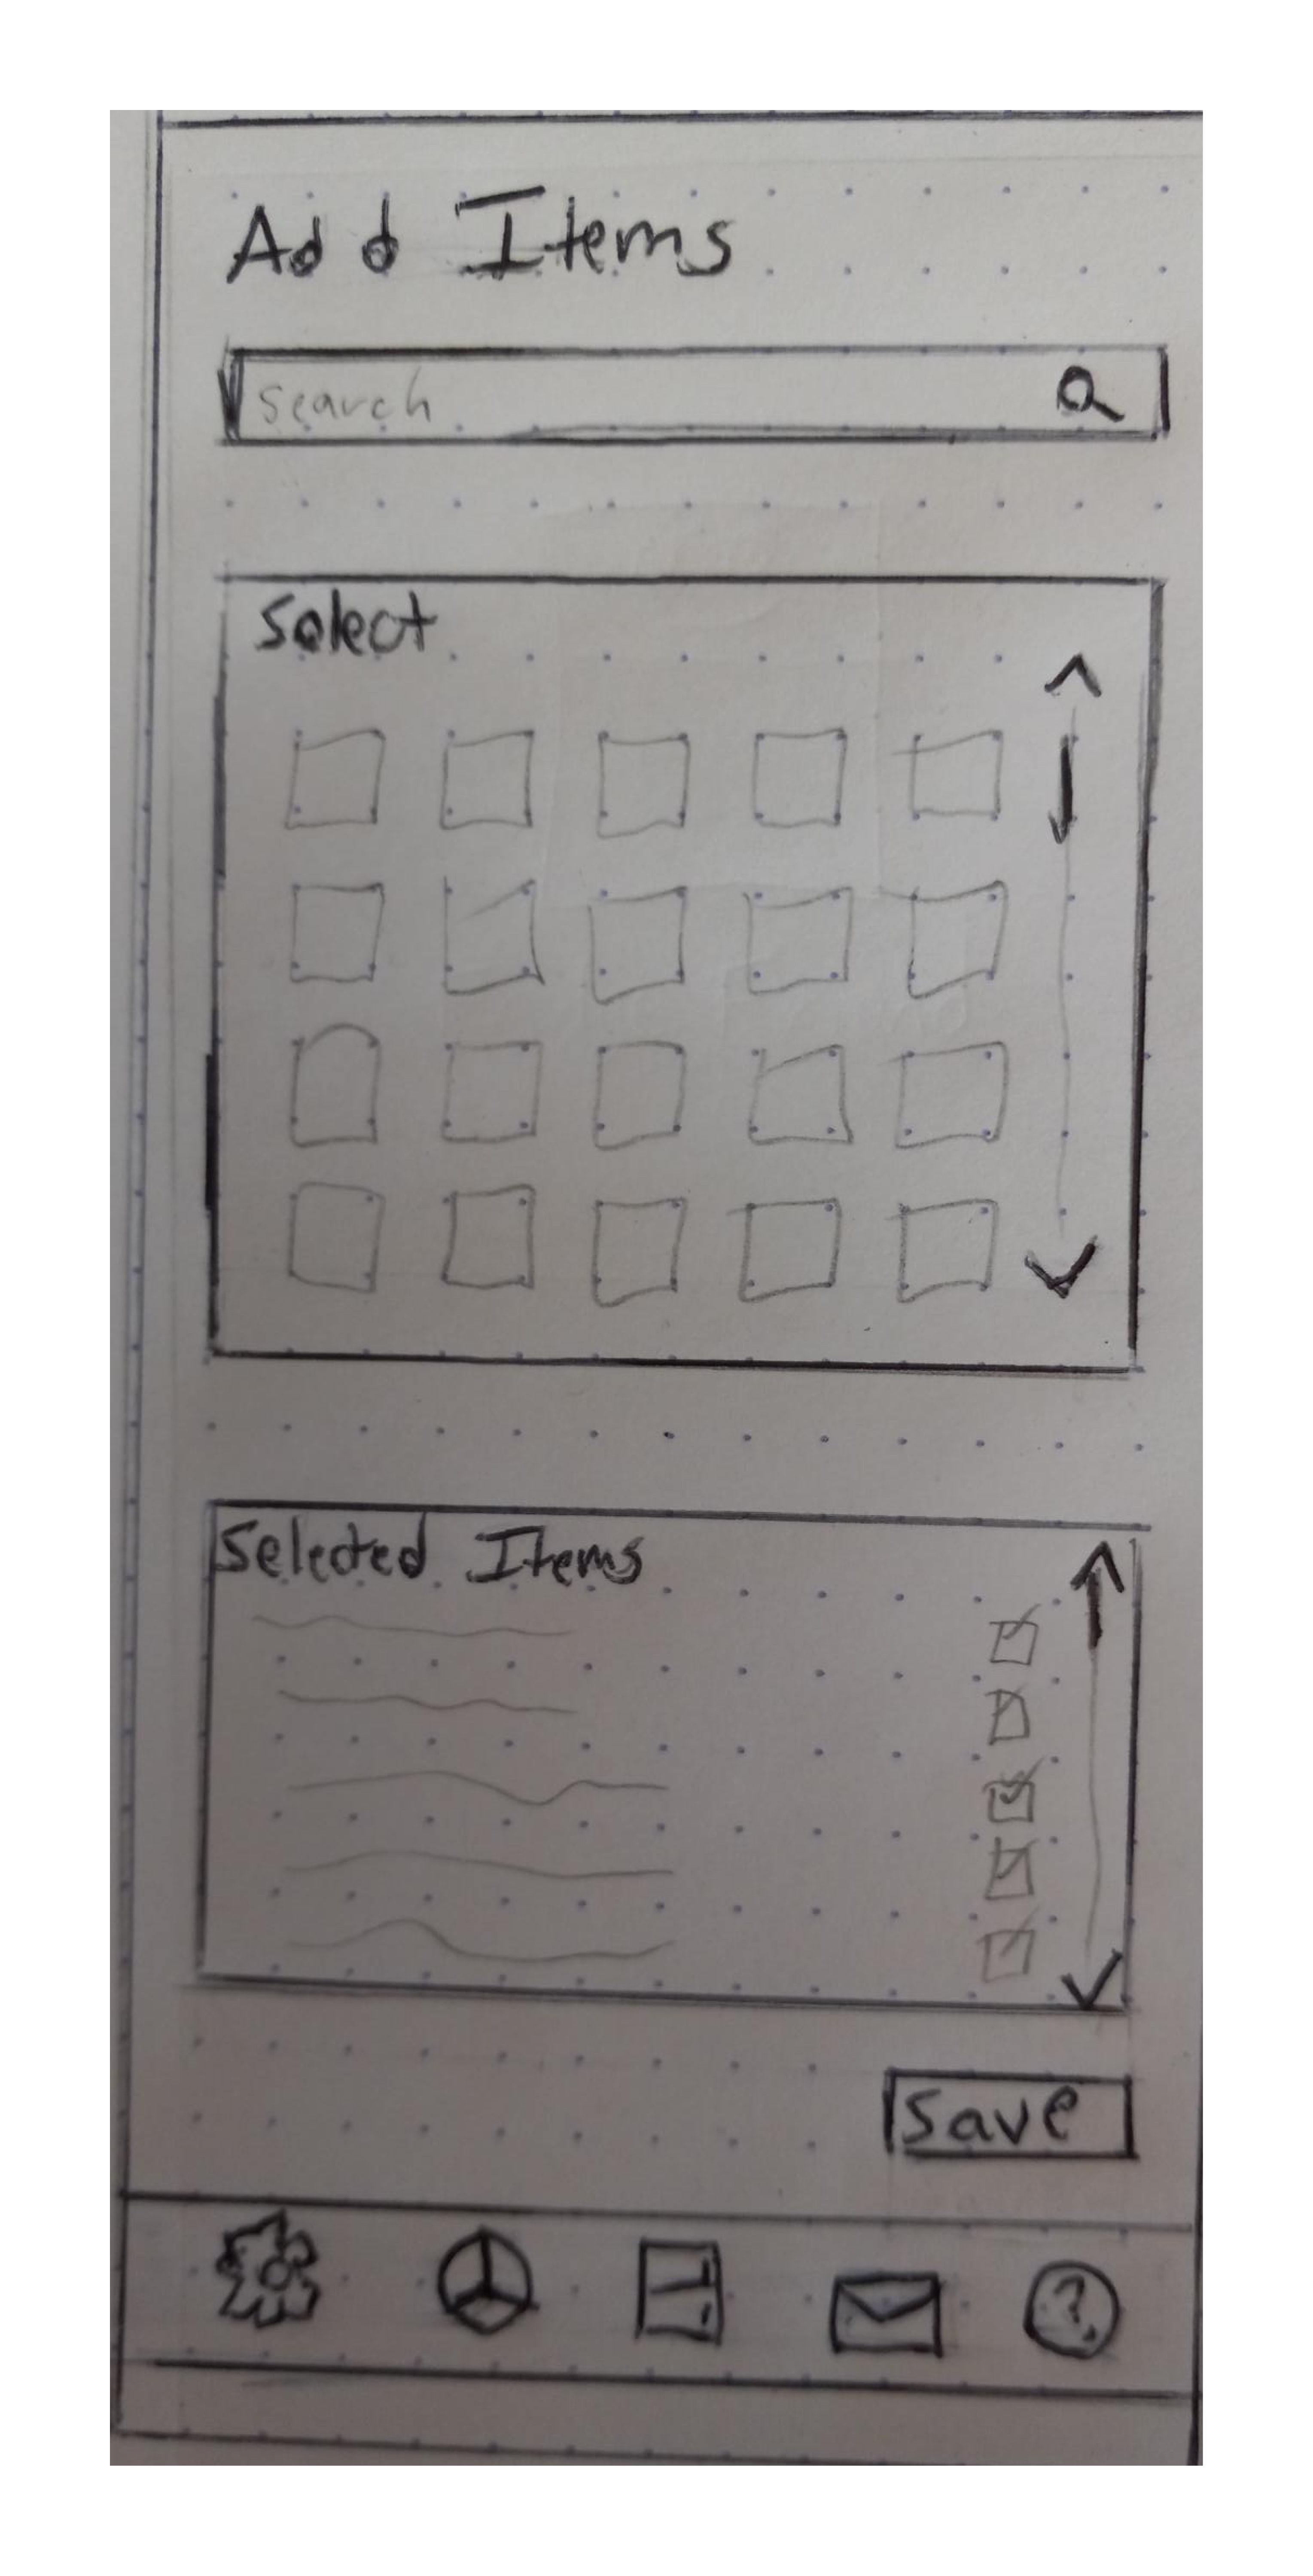 Add Items
search
Select
Selected Items
Save
?